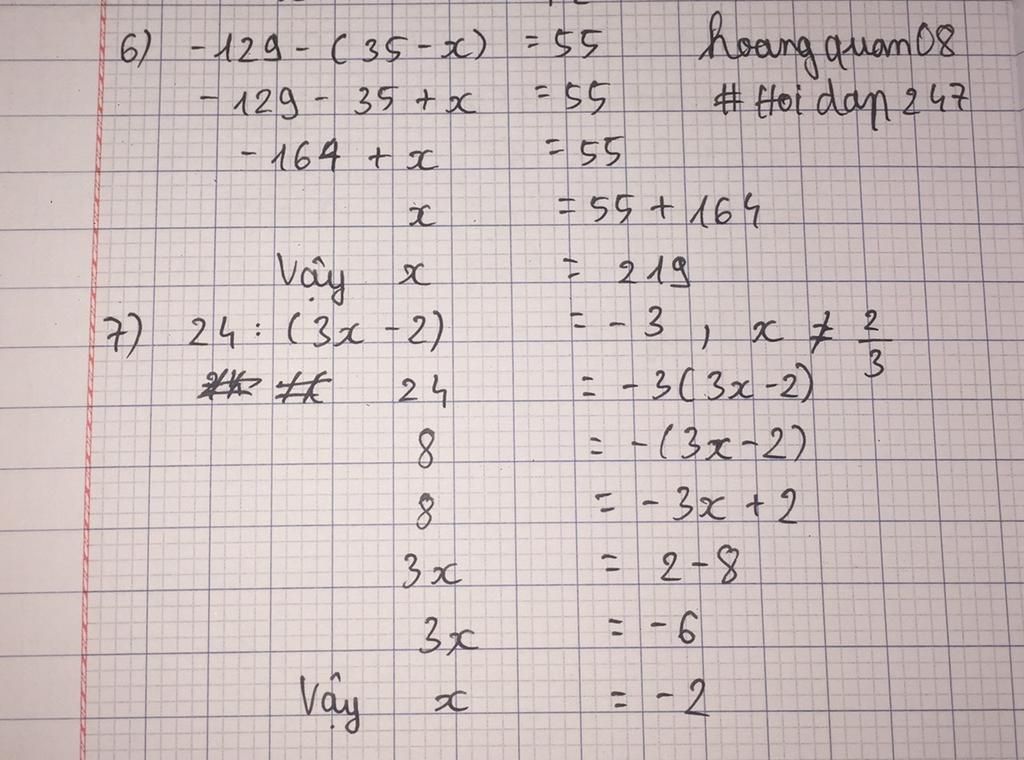 6) -129 - (35 - x) = 55 hoangquan08
-129 - 35 + x = 55 # Hoidap247
-164 + x = 55
x = 55 + 164
Vậy x = 219
7) 24 : (3x - 2) = -3 , x ≠ 2/3
24 = -3(3x-2)
8 = -(3x-2)
8 = -3x + 2
3x = 2-8
3x = -6
Vậy x = -2